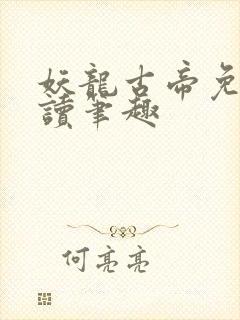 妖龍古帝免
讀筆趣
何亮亮